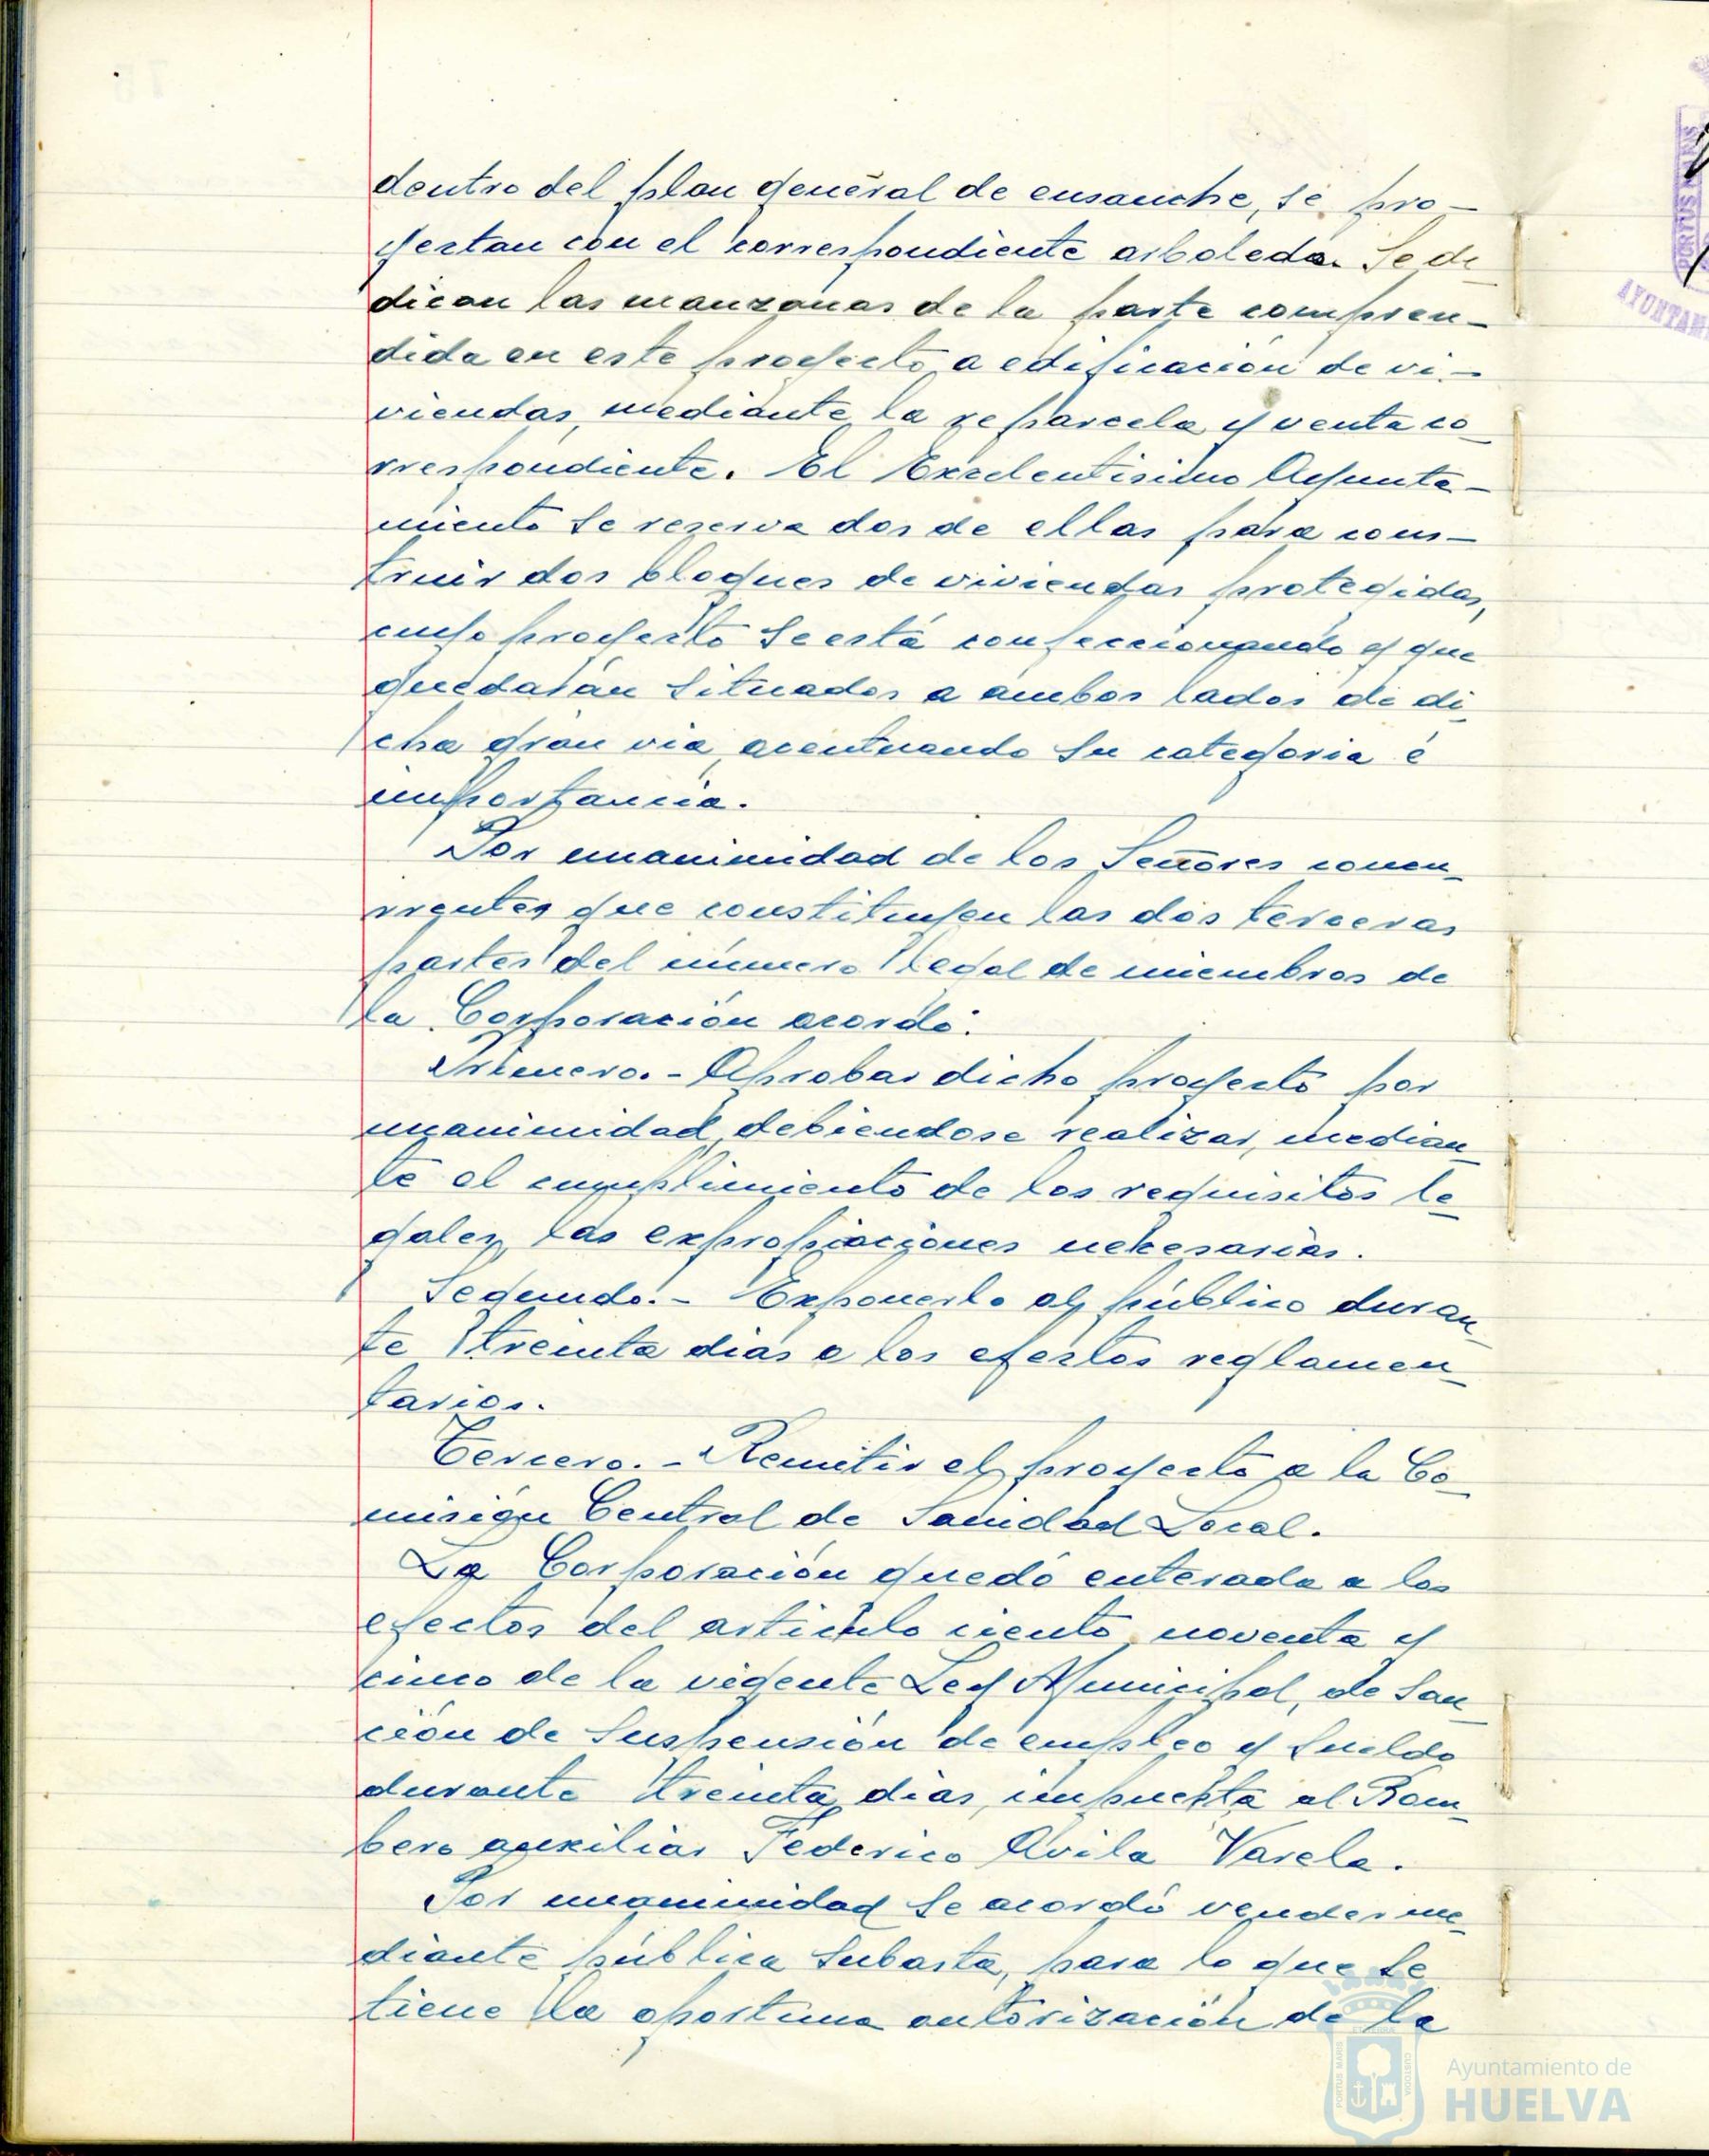 dentro del plan general de ensanche, se pro-
yectan con el correspondiente arboleda. Se de
dican las manzanas de la parte compren-
dida en este proyecto a edificación de vi-
viendas, mediante la reparcela y venta co-
rrespondiente. El Excelentisimo Ayunta-
miento se reserva dos de ellas para cons-
truir dos bloques de viviendas protegidas,
cuyo proyecto se está confeccionando y que
quedarán situados a ambos lados de di-
cha gran via, acentuando su categoria é
importancia.
Por unanimidad de los Señores concu-
rrentes que constituyen las dos terceras
partes del número legal de miembros de
la Corporación acordó:
Primero.- Aprobar dicho proyecto por
unanimidad, debiendose realizar, median-
te el cumplimiento de los requisitos le-
gales, las expropiaciones necesarias.
Segundo.- Exponerlo al público duran-
te treinta dias a los efectos reglamen-
tarios.
Tercero.- Remitir el proyecto a la Co-
misión Central de Sanidad Local.
La Corporación quedó enterada a los
efectos del articulo ciento noventa y
cinco de la vigente Ley Municipal, de San-
ción de suspensión de empleo y sueldo
durante treinta dias, impuesta al Bom-
bero auxiliar Federico Avila Varela.
Por unanimidad se acordó vender me-
diante pública subasta, para lo que se
tiene la oportuna autorización de la
PORTUS MARIS
AYUNTAM
PORTUS MARIS
CUSTODIA
Ayuntamiento de
HUELVA